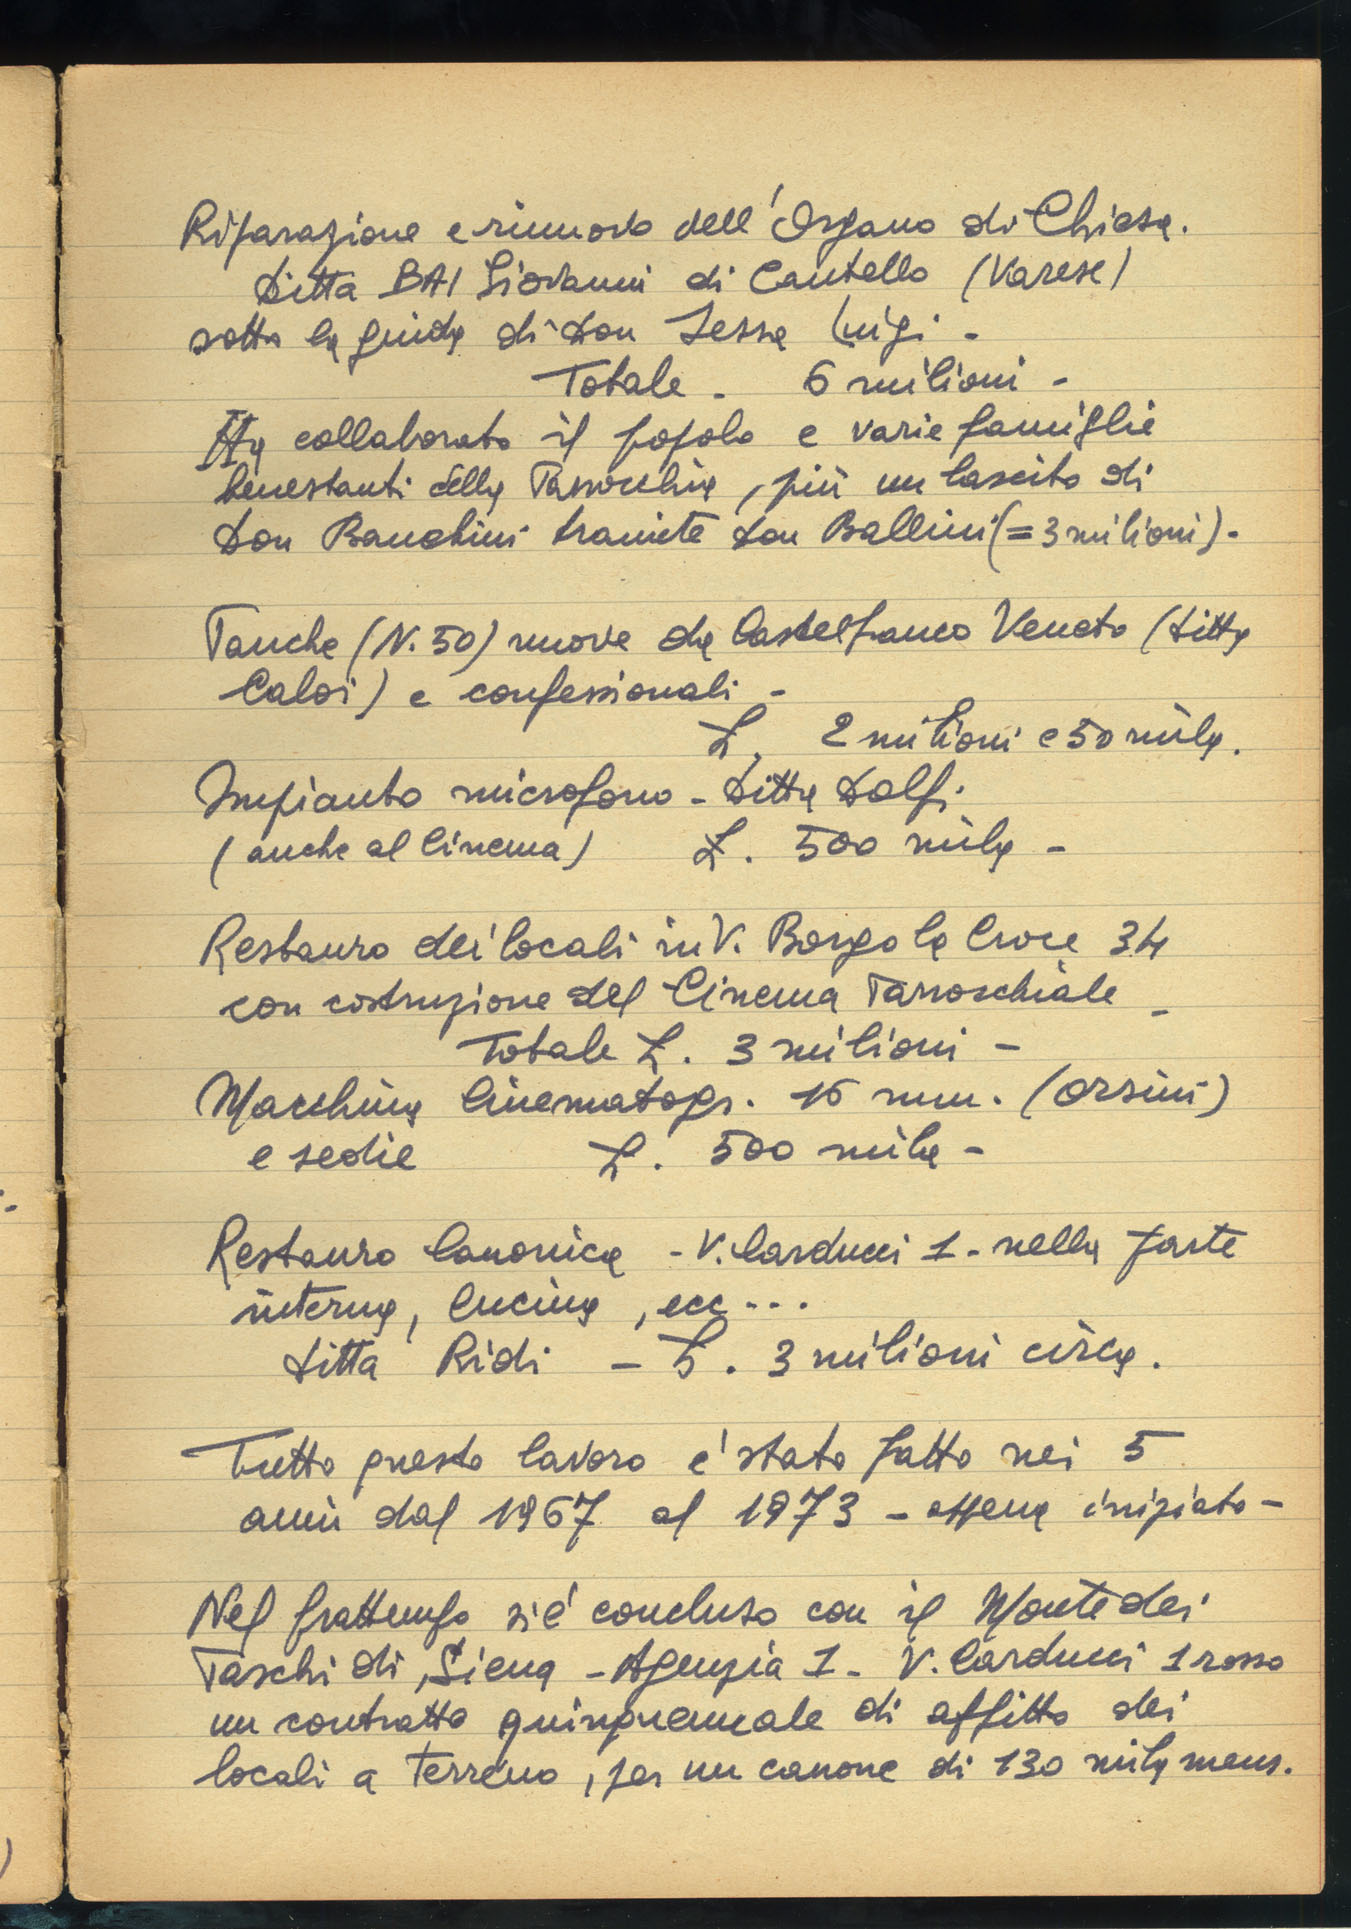 Riparazione e rinnovo dell'Organo di Chiesa.
Ditta BAI Giovanni di Cantello (Varese)
sotto la guida di Don Sessa Luigi -
Totale - 6 milioni -
Ha collaborato il popolo e varie famiglie
benestanti della Parrocchia, più un lascito di
Don Banchini tramite Don Ballini (= 3 milioni) -
Panche (N. 50) nuove da Castelfranco Veneto (Ditta
Caloi) e confessionali -
L. 2 milioni e 50 mila.
Impianto microfono - Ditta Dolfi
(anche al Cinema) L. 500 mila -
Restauro dei locali in V. Borgo la Croce 34
con costruzione del Cinema Parrocchiale -
Totale L. 3 milioni -
Macchina Cinematogr. 16 mm. (Orsini)
e sedie L. 500 mila -
Restauro Canonica - V. Carducci 1 - nella parte
interna, Cucina, ecc...
Ditta Ridi - L. 3 milioni circa.
Tutto questo lavoro e' stato fatto nei 5
anni dal 1967 al 1973 - appena iniziato -
Nel frattempo si e' concluso con il Monte dei
Paschi di Siena - Agenzia 1 - V. Carducci 1 rosso
un contratto quinquennale di affitto dei
locali a terreno, per un canone di 130 mila mens.